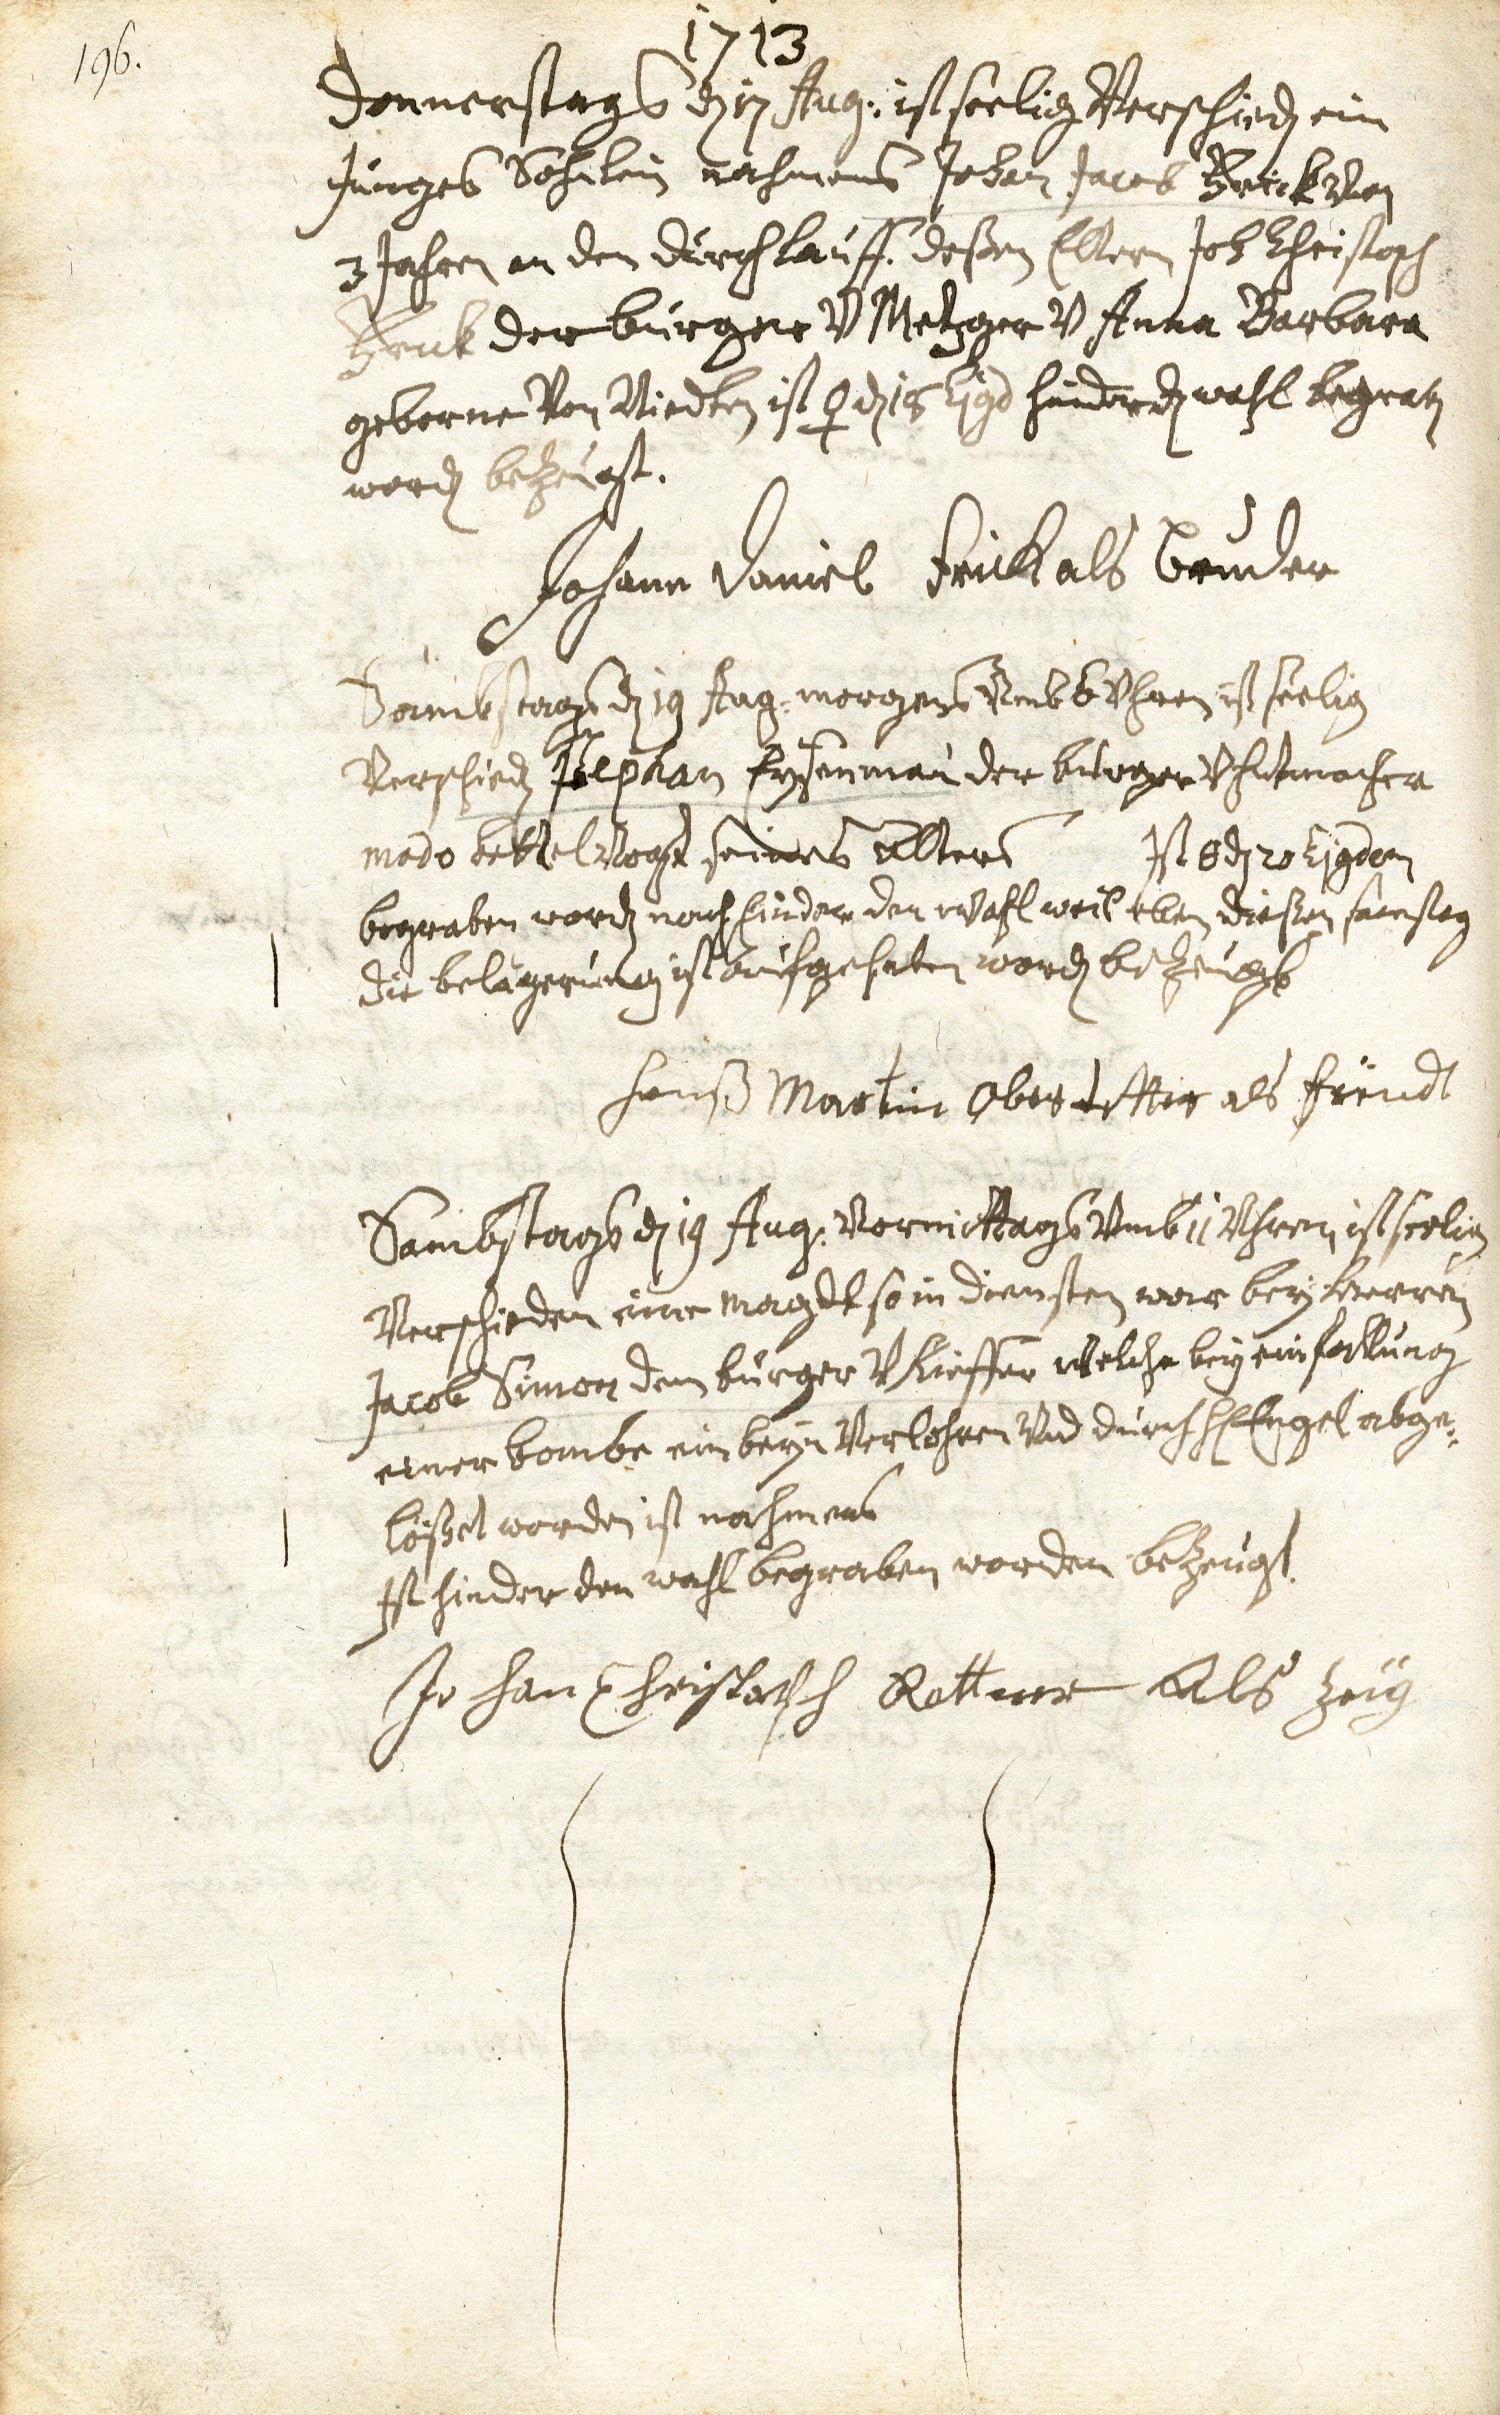 196.
1713
Donnerstags d 17 Aug: ist seelig Verschied ein
Junges Söhnlein nahmens Johan Jacob Frick Von
3 Jahren an den durchlauff. deßen Eltern Joh Christoph
Frick der burger V Metzger V Anna Barbara
geborne Von ist ♀ d 18 hinder d wahl begrab
word betzeugt.
Johann Daniel Frick als bruder
Sambstags d 19 Aug: morgens Vmb 6 Vhren ist seelig
Verschied Stephan Eysenman der burger V hutmacher
modo bettelVogt seines alters Ist d 20
begraben word noch hinder den Wahl weil eben dießen samstag
die belägerung ist aufgehaben word betzeugt
Hanß Martin als fründt
Sambstags d 19 Aug: Vormittags Vmb 11 Vhren ist seelig
Verschieden eine magdt so in diensten war bey herren
Jacob Simon dem burger V Kieffer Welche bey einfallung
einer bombe ein beyn Verlohren Vnd durch Engel abge-
lößet worden ist nahmens
Ist hinder den wahl begraben worden betzeugt.
Johan Christoph Rettner Als zeüg